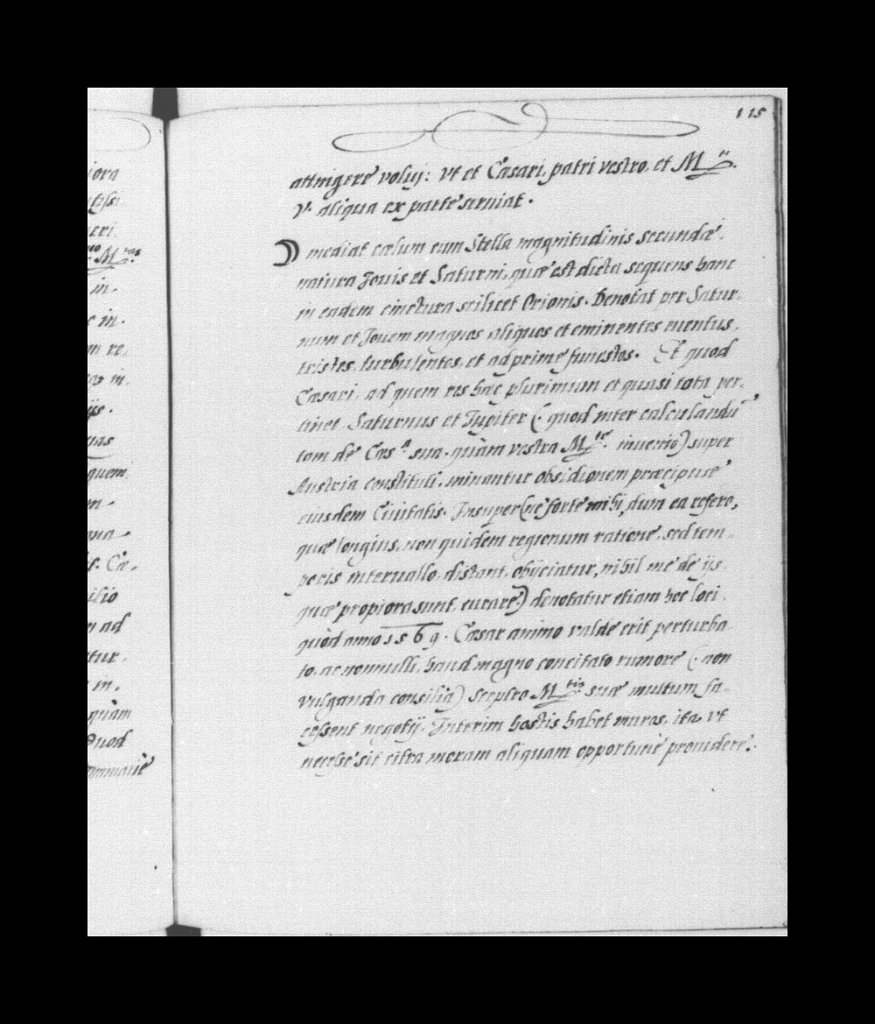 115
attingere volui: vt et Cæsari, patri vestro, et M.ti
V. aliqua ex parte seruiat.
☽ mediat cælum cum Stella magnitudinis secundæ,
natura Jouis et Saturni, quæ est dicta sequens hanc
in eadem cinctura scilicet Orionis. Denotat per Satur-
num et Jouem magnos aliquos et eminentes euentus,
tristes, turbulentos, et ad prime funestos. Et quod
Cæsari, ad quem res hæc plurimum et quasi tota per-
tinet, Saturnus et Jupiter (: quod inter calculandũ
tam de Cæs.a sua, quàm vestra M.te inuenio) super
Austria constituti, minantur obsidionem præcipuæ
eiusdem Ciuitatis. Insuper (ne forte mihi, dum ea refero,
quæ longius, non quidem regionum ratione, sed tem-
poris interuallo distant, obijciatur, nihil me de ijs
quæ propiora sunt, curare) denotatur etiam hoc loci
quòd anno 1569. Cæsar animo valde erit perturba-
to, ac nonnulli, haud magno concitato rumore (: non
vulganda consilia) Sceptro M.tis suæ multum fa-
cessent negotij. Interim hostis habet muros, ita vt
necesse sit citra moram aliquam opportunè prouidere.
iora
M.tas
in-
e in-
m re-
in-
ijs.
quem
qua
Cæ-
ilio
m ad
tur-
in,
quàm
Quod